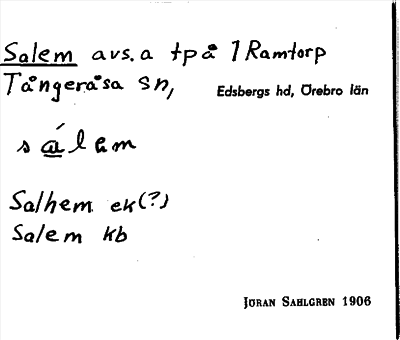 Salem avs. a tp å 1 Ramtorp
Tångeråsa sn,
Edsbergs hd, Örebro län
sálem
Salhem ek(?)
Salem kb
JÖRAN SAHLGREN 1906